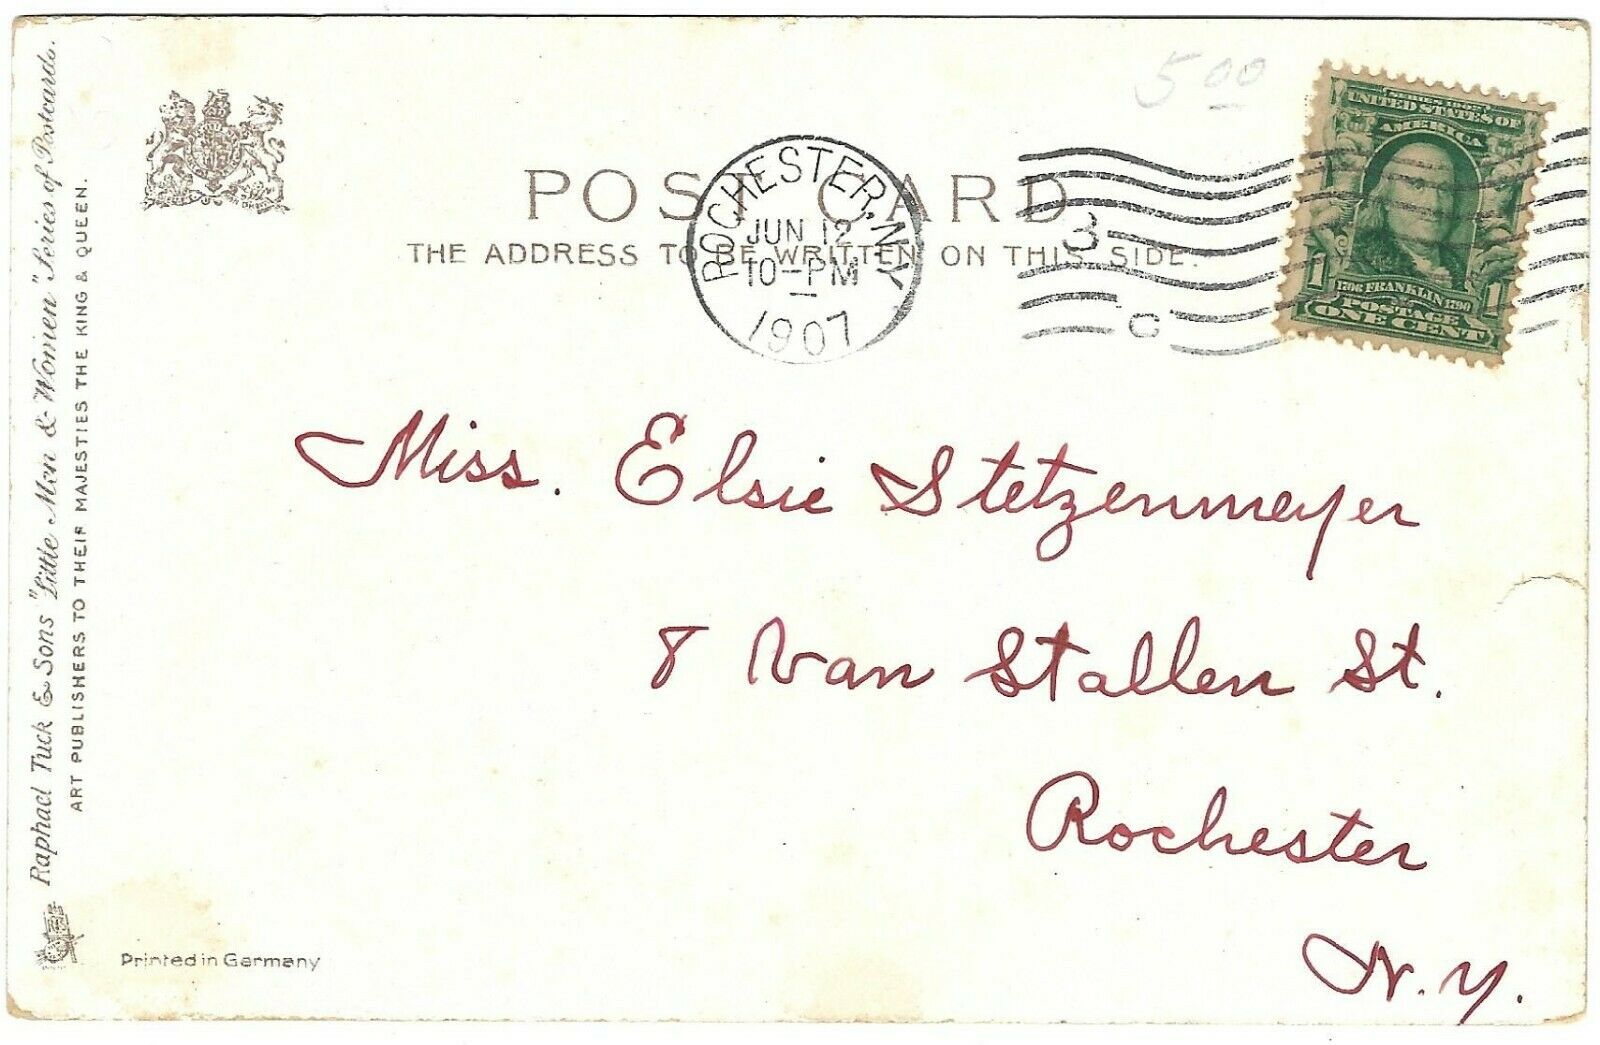 5.00
POST CARD
THE ADDRESS TO BE WRITTEN ON THIS SIDE.
ROCHESTER, N.Y.
JUN 12
10-PM
1907
3
C
SERIES 1902
UNITED STATES OF
AMERICA
1706 FRANKLIN 1790
1 1
POSTAGE
ONE CENT
Miss. Elsie Stetzenmeyer
8 Van Stallen St.
Rochester
N.Y.
Raphael Tuck & Sons "Little Men & Women" Series of Postcards.
ART PUBLISHERS TO THEIR MAJESTIES THE KING & QUEEN.
Printed in Germany